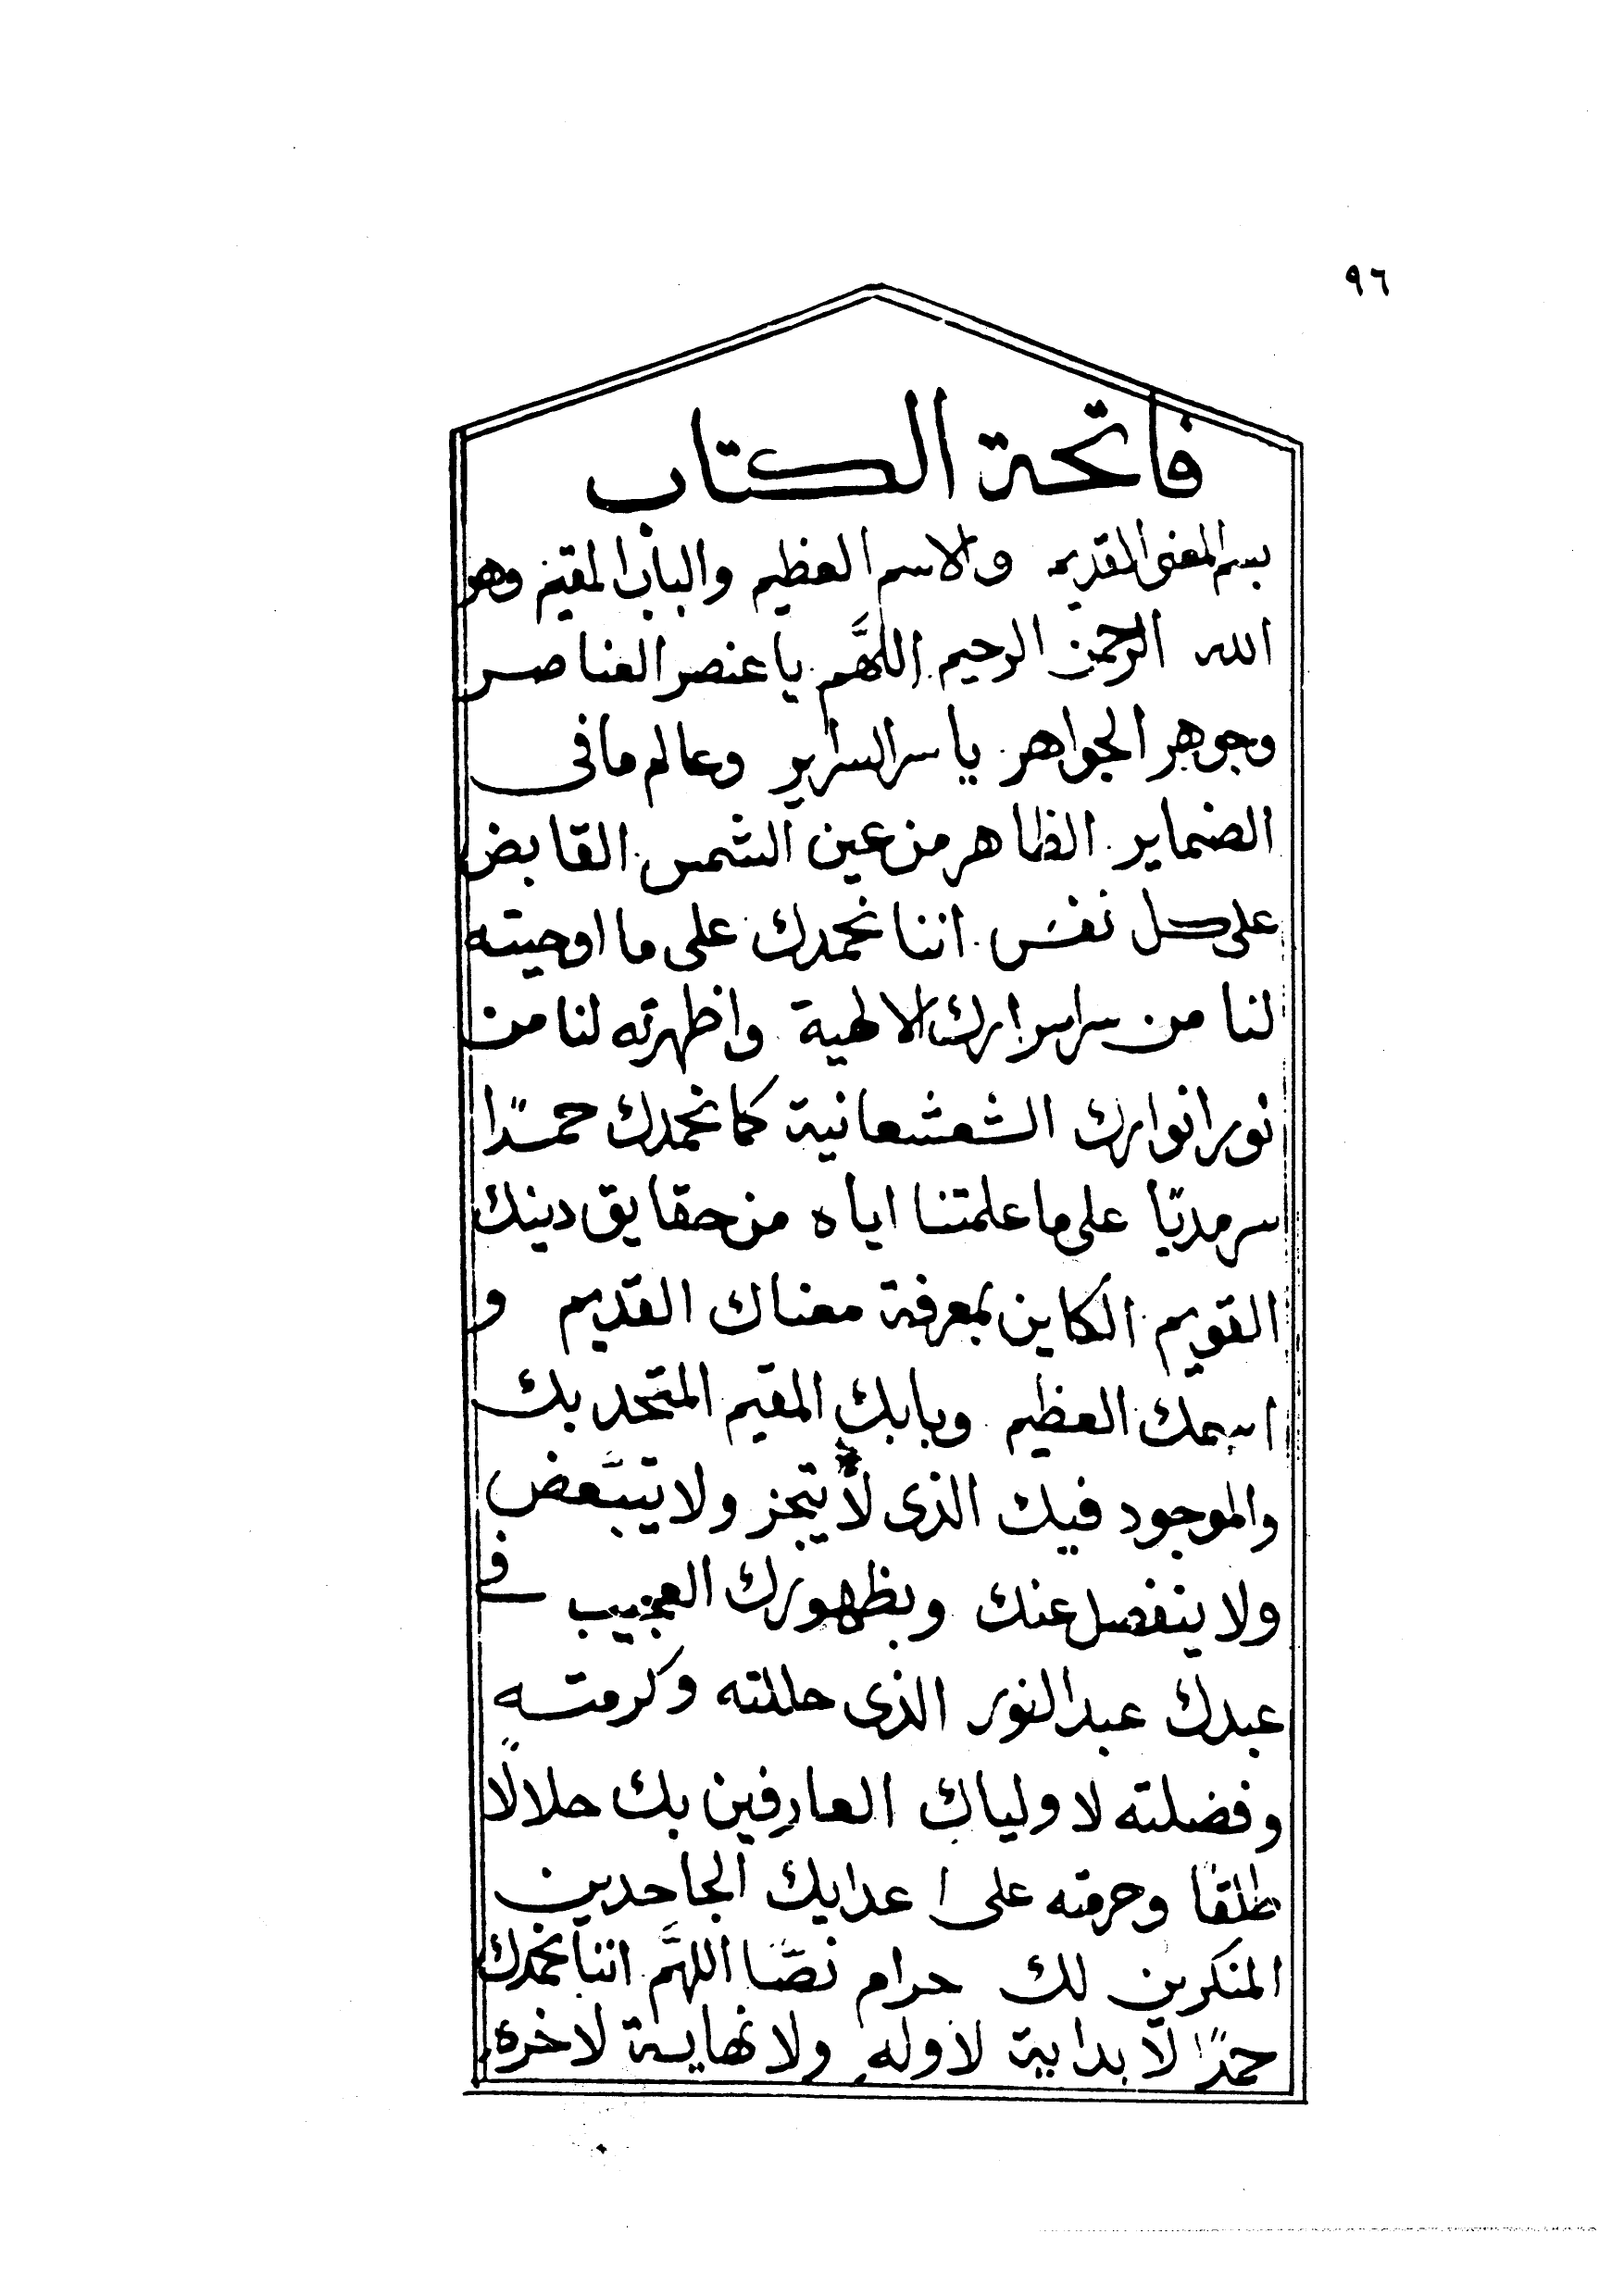 ٩٦
فاتحة الكتاب
بسم المعنى القديم والاسم العظيم والباب المقيم وهو
الله الرحمن الرحيم اللهَّم يا عنصر العناصر
وجوهر الجواهر يا سر السراير وعالم ما فى
الضماير الظاهر من عين الشمس القابض
على كل نفس اننا نحمدك على ما اوحيته
لنا من سر اسرارك الالهية واظهرته لنا من
نور انوارك الشعشعانية كما نحمدك حمدًا
سرمديًا على ما علمتنا اياه من حقايق دينك
القويم الكاين بمعرفة معناك القديم و
اسمك العظيم وبابك المقيم المتحد بك
والموجود فيك الذى لا يتجز ولا يتبَّعض
ولا ينفصل عنك وبظهورك العجيب فى
عبدك عبد النور الذى حللته وكرمته
وفضلته لاولياك العارفين بك حلالًا
طلقًا وحرمته على اعدايك الجاحدين
المنكرين لك حرام نصًّا اللهَّم اننا نحمدك
حمدًا لا بداية لاوله ولا نهاية لاخره